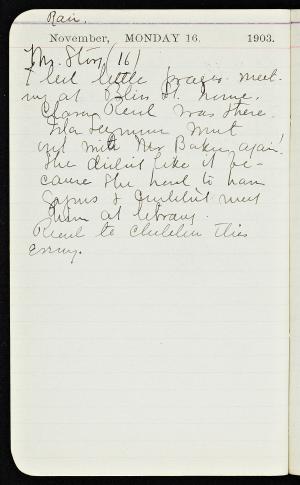 Rain.
November, MONDAY 16. 1903.
Mr. Story (16)
I led little prayer meet-
ing at Bliss St. home.
Clara Reid was there.
Ida Seymour went
out with Mr Baker again!
She didn't like it be-
cause she had to have
& couldn't meet
them at library.
Read to children this